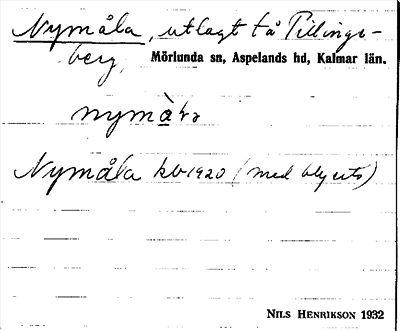 Nymåla, utlagt få Tillings-
berg, Mörlunda sn, Aspelands hd, Kalmar län.
nymå̀la
Nymåla kb 1920 (med blyerts)
NILS HENRIKSON 1932